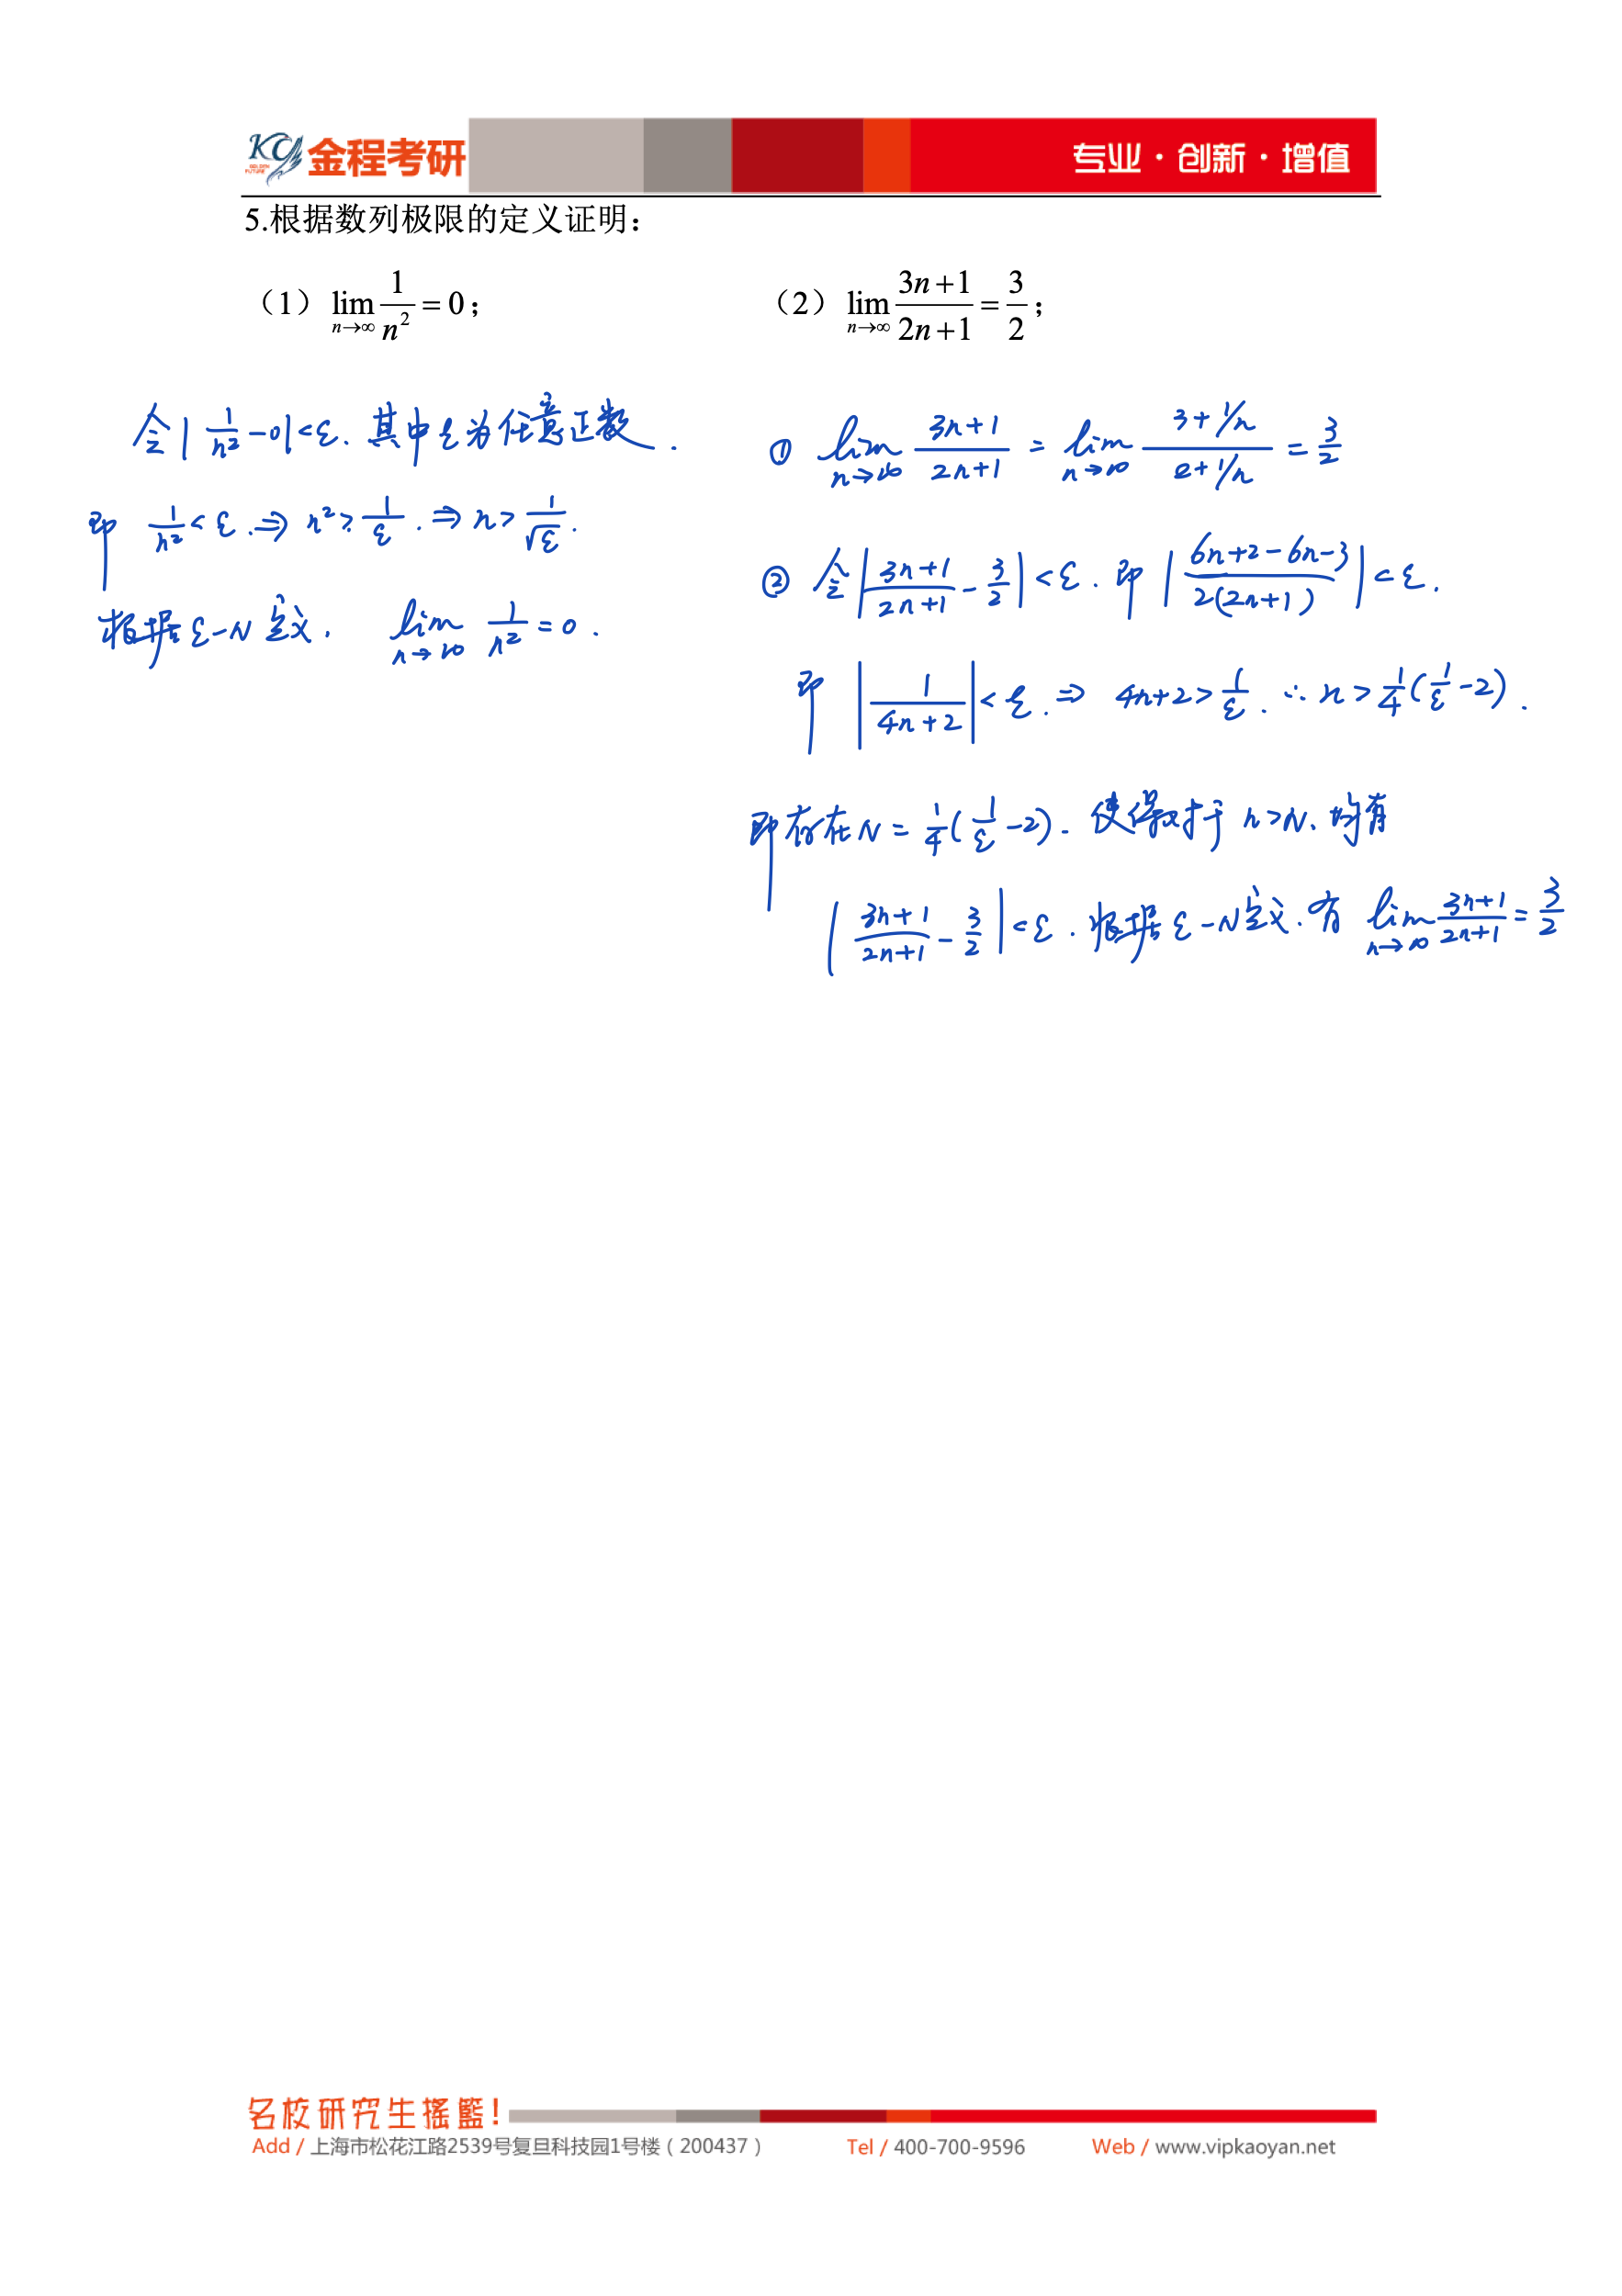 KCY 金程考研 专业·创新·增值
GOLDEN FUTURE
5.根据数列极限的定义证明：
（1）lim_{n→∞} 1/n² = 0； （2）lim_{n→∞} (3n+1)/(2n+1) = 3/2；
令|1/n² - 0|<ε. 其中ε为任意正数.
即 1/n² < ε. ⇒ n² > 1/ε. ⇒ n > 1/√ε.
根据ε-N定义. lim_{n→∞} 1/n² = 0.
① lim_{n→∞} (3n+1)/(2n+1) = lim_{n→∞} (3+1/n)/(2+1/n) = 3/2
② 令|(3n+1)/(2n+1) - 3/2| < ε. 即 |(6n+2-6n-3)/(2(2n+1))| < ε.
即 |1/(4n+2)| < ε. ⇒ 4n+2 > 1/ε. ∴ n > 1/4(1/ε - 2).
即存在N = 1/4(1/ε - 2). 使得对于 n>N. 均有
|(3n+1)/(2n+1) - 3/2| < ε. 根据ε-N定义. 有 lim_{n→∞} (3n+1)/(2n+1) = 3/2
名校研究生摇籃!
Add / 上海市松花江路2539号复旦科技园1号楼（200437） Tel / 400-700-9596 Web / www.vipkaoyan.net